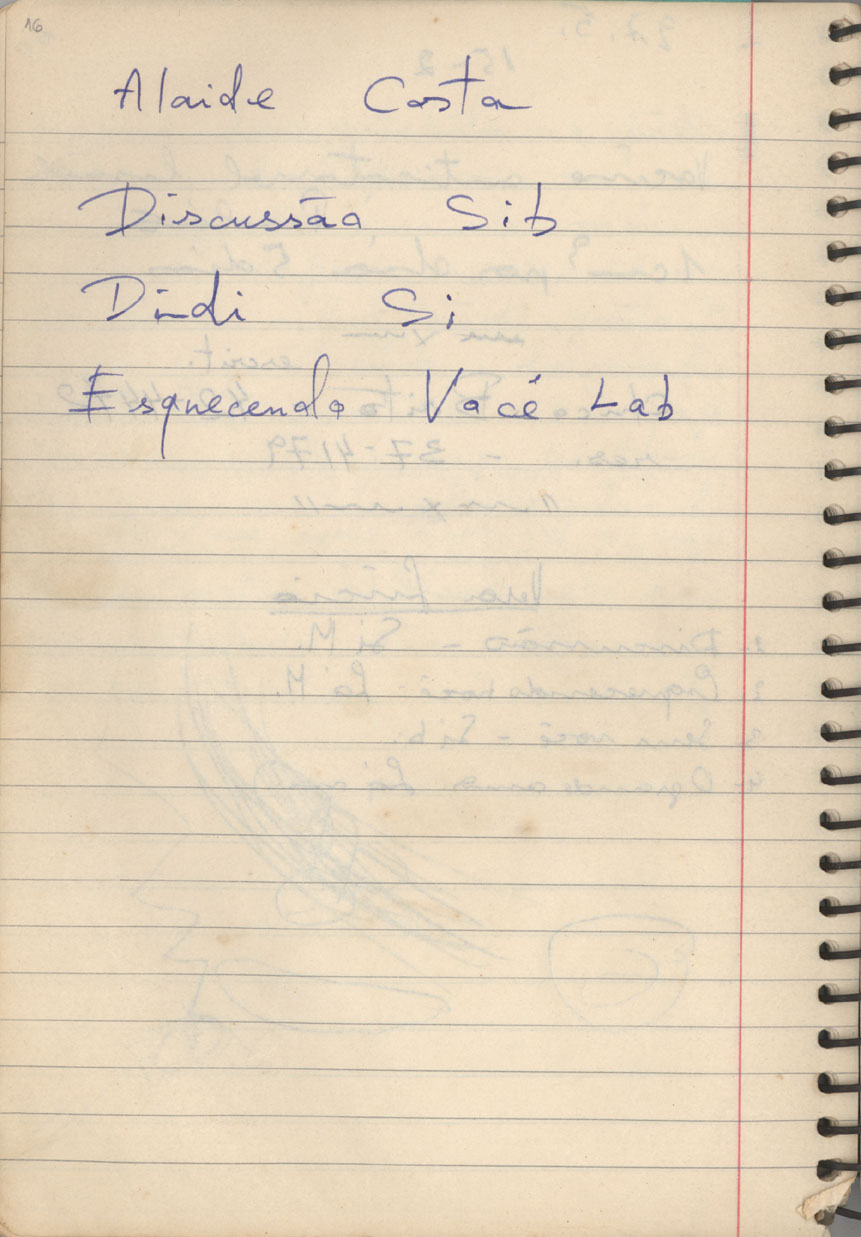 16
Alaide Costa
Discussão Sib
Dindi Si
Esquecendo Você Lab